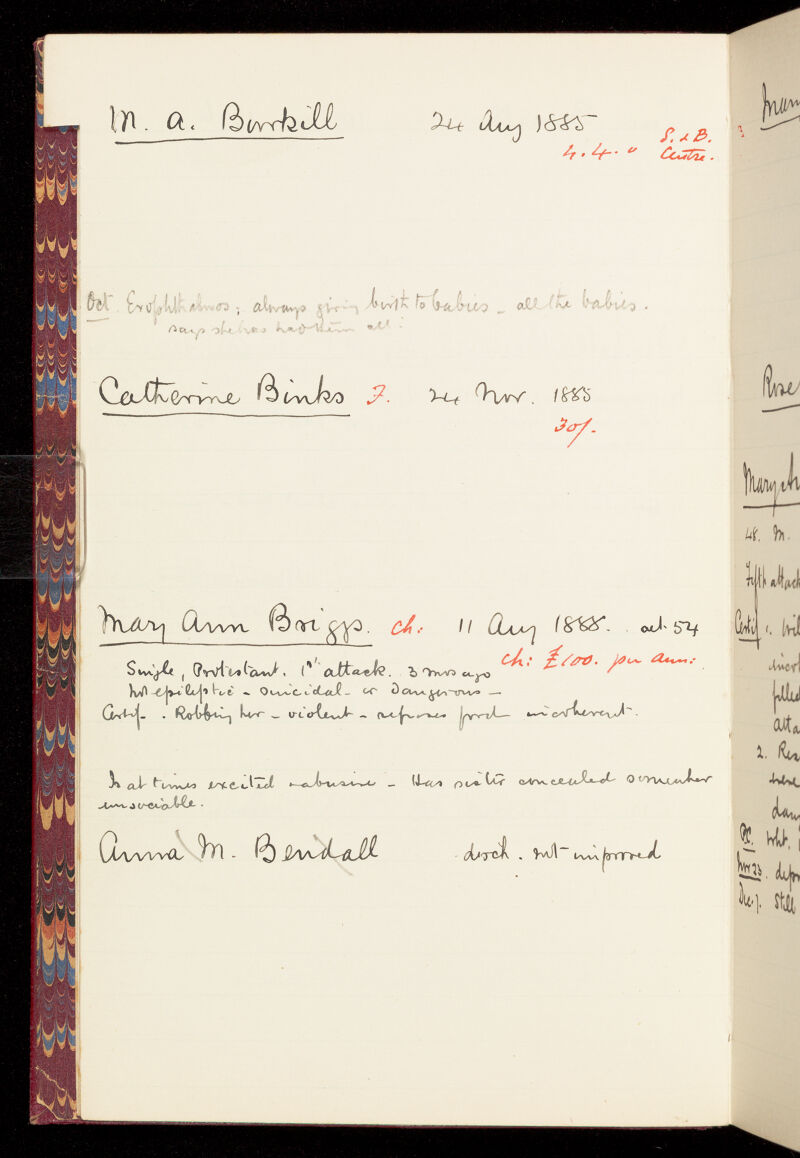 M. A. Burkill 24 Aug 1885
S. & B.
4. 4. 0 Centre.
Oct. Exophthalmos; always giving birth to babies - all the babies.
says she has had them all
Catherine Binks F. 24 Nov. 1885
30/-
Mary Ann Briggs. Ch: 11 Aug 1888. aet. 54
Ch: £100. per ann:
Single, Protestant. 1st attack. 3 mos ago
Not epileptic - suicidal - or Dangerous -
Certif. Robbing her - violent - refuses food incoherent.
Is at times excited abusive - Has sister concealed somewhere
unsociable.
Anna M. Bendall disch. not improved
Rose
Mary
48. M.
Fifth attack
Certif 1.
filled
2.
Nov 23.
Dec. 7. Still